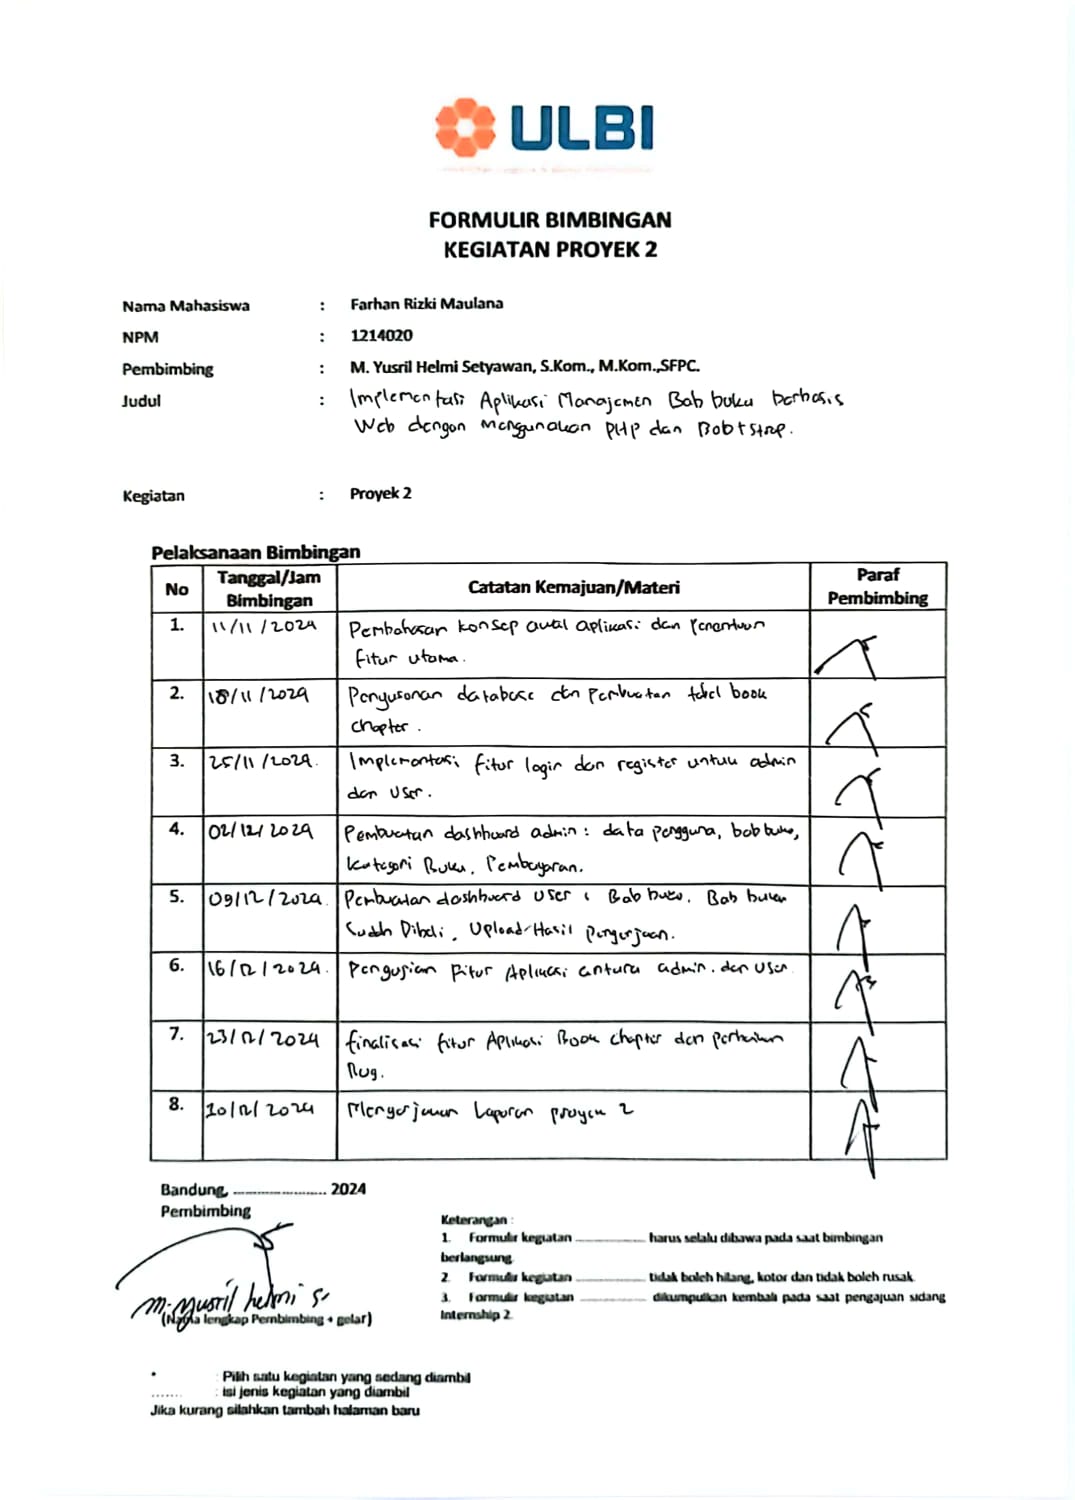 ULBI
FORMULIR BIMBINGAN
KEGIATAN PROYEK 2
Nama Mahasiswa : Farhan Rizki Maulana
NPM : 1214020
Pembimbing : M. Yusril Helmi Setyawan, S.Kom., M.Kom.,SFPC.
Judul : Implementasi Aplikasi Manajemen Bab buku berbasis
Web dengan Menggunakan PHP dan Bobtstrap.
Kegiatan : Proyek 2
Pelaksanaan Bimbingan
No Tanggal/Jam Bimbingan Catatan Kemajuan/Materi Paraf Pembimbing
1. 11/11/2024 Pembahasan konsep awal aplikasi dan Penentuan
fitur utama.
2. 18/11/2024 Penyusunan database dan pembuatan tabel book
chapter.
3. 25/11/2024. Implementasi fitur login dan register untuk admin
dan User.
4. 02/12/2024 Pembuatan dashboard admin: data pengguna, bab buku,
Kategori Buku, Pembayaran.
5. 09/12/2024. Pembuatan dashboard User : Bab buku, Bab buku
Sudah Dibeli, Upload Hasil pengerjaan.
6. 16/12/2024. Pengujian Fitur Aplikasi antara admin dan User.
7. 23/12/2024 finalisasi fitur Aplikasi Book chapter dan perbaikan
Bug.
8. /12/2024 Mengerjakan Laporan proyek 2
Bandung, ........................ 2024
Pembimbing
M. Yusril helmi S.
(Nama lengkap Pembimbing + gelar)
Keterangan :
1. Formulir kegiatan .................. harus selalu dibawa pada saat bimbingan
berlangsung.
2. Formulir kegiatan .................. tidak boleh hilang, kotor dan tidak boleh rusak.
3. Formulir kegiatan .................. dikumpulkan kembali pada saat pengajuan sidang
Internship 2.
* : Pilih satu kegiatan yang sedang diambil
....... : isi jenis kegiatan yang diambil
Jika kurang silahkan tambah halaman baru